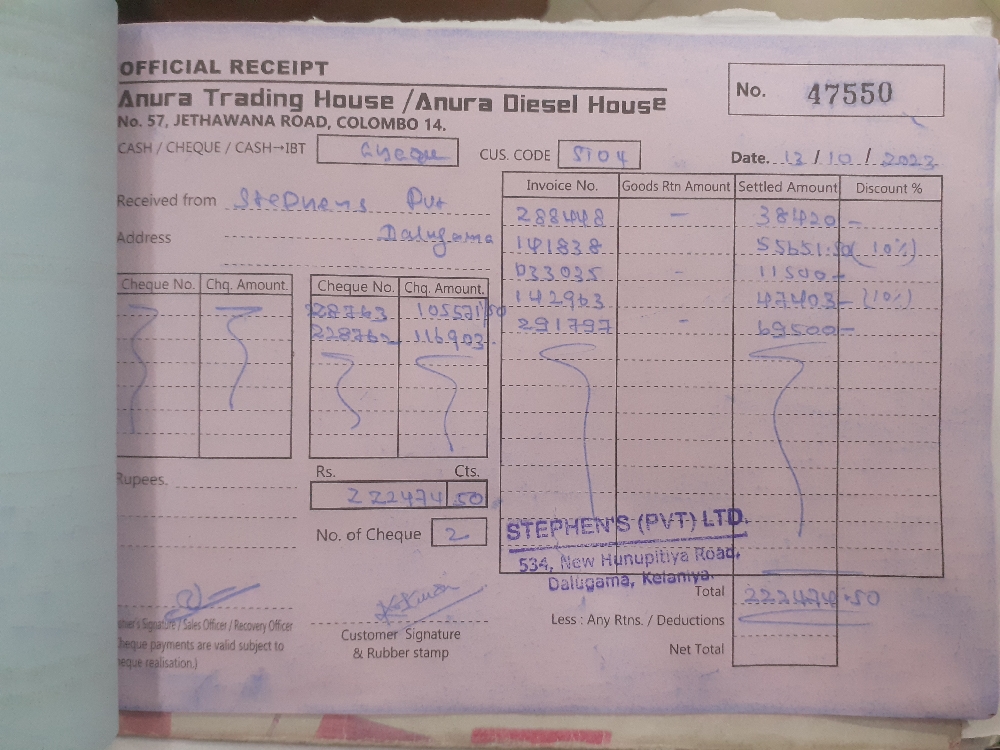 OFFICIAL RECEIPT
Anura Trading House /Anura Diesel House
No. 57, JETHAWANA ROAD, COLOMBO 14.
No. 47550
CASH / CHEQUE / CASH→IBT Cheque CUS. CODE ST04 Date. 13 / 10 / 2023
Received from Stephens Pvt
Address Dalugama
Cheque No. Chq. Amount.
Cheque No. Chq. Amount.
228763 105571 50
228762 116903.
Invoice No. Goods Rtn Amount Settled Amount Discount %
288448 – 38420 –
141838 55651.50 (10%)
033035 - 11500 –
142963 47403 – (10%)
291797 - 69500 –
Rupees.
Rs. Cts.
222474 50
No. of Cheque 2
STEPHEN'S (PVT) LTD.
534, New Hunupitiya Road,
Dalugama, Kelaniya.
Total 222474.50
Less : Any Rtns. / Deductions
Net Total
Signature / Sales Officer / Recovery Officer
heque payments are valid subject to
eque realisation.)
Customer Signature
& Rubber stamp